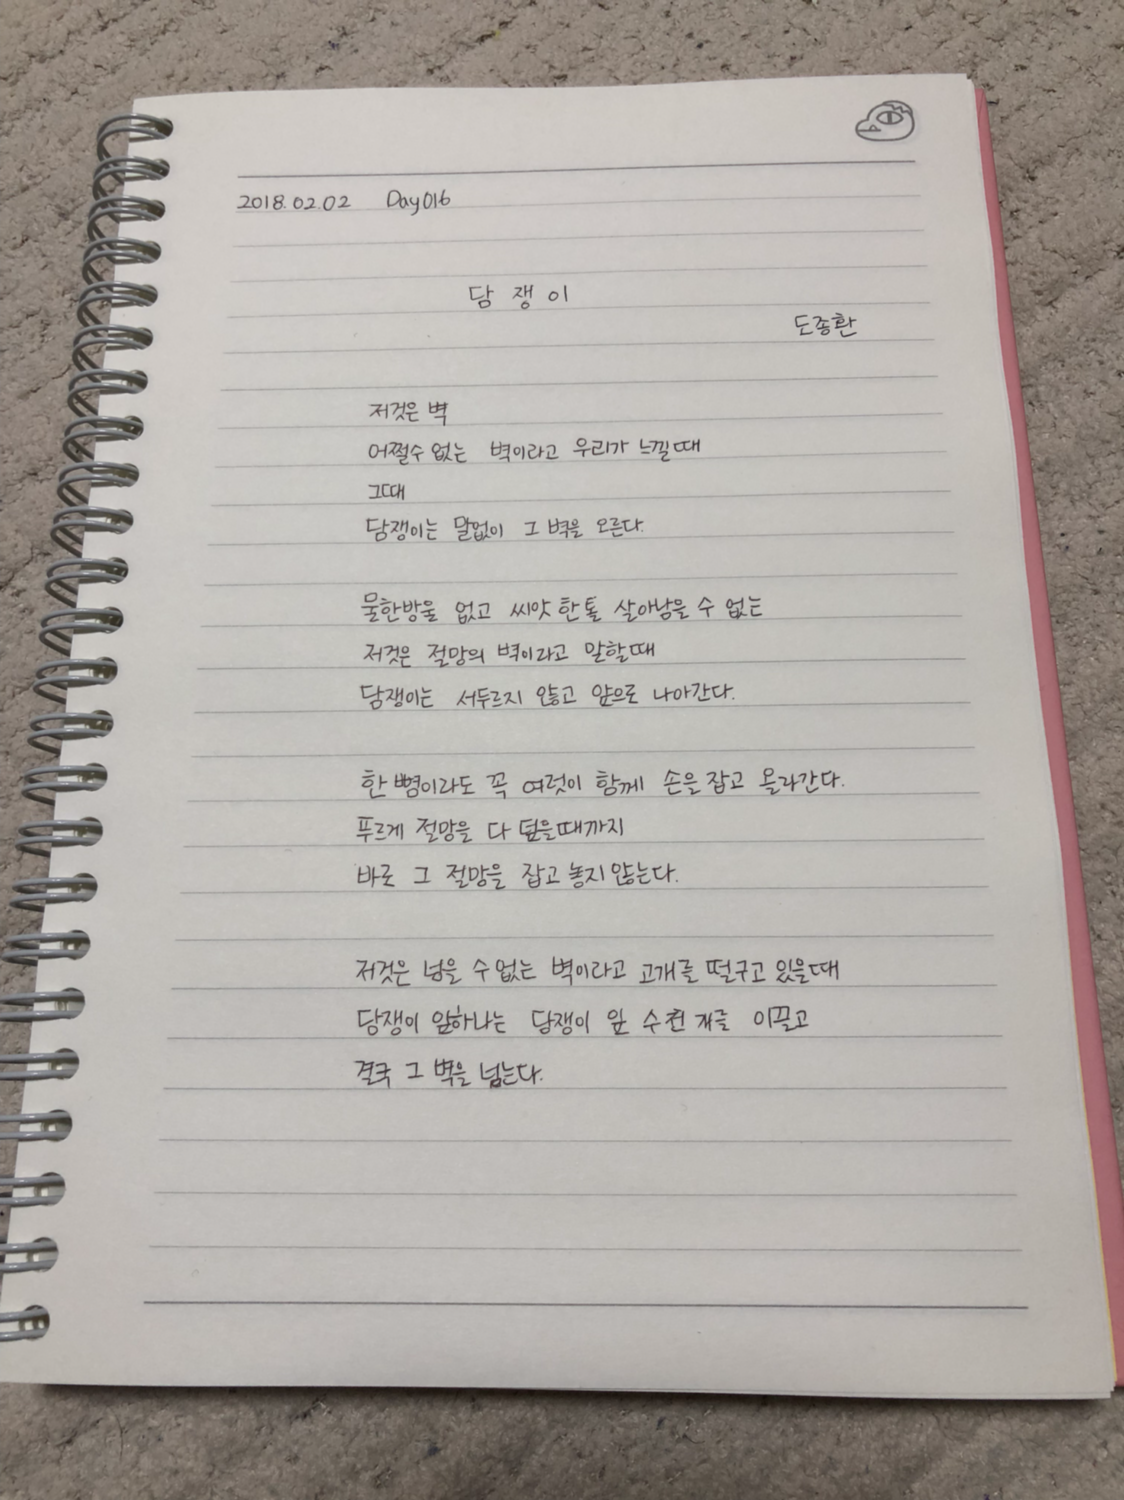 2018.02.02 Day016
담쟁이
도종환
저것은 벽
어쩔수 없는 벽이라고 우리가 느낄때
그때
담쟁이는 말없이 그 벽을 오른다.
물한방울 없고 씨앗 한톨 살아남을 수 없는
저것은 절망의 벽이라고 말할때
담쟁이는 서두르지 않고 앞으로 나아간다.
한 뼘이라도 꼭 여럿이 함께 손을 잡고 올라간다.
푸르게 절망을 다 덮을때까지
바로 그 절망을 잡고 놓지 않는다.
저것은 넘을 수 없는 벽이라고 고개를 떨구고 있을때
담쟁이 잎하나는 담쟁이 잎 수천 개를 이끌고
결국 그 벽을 넘는다.